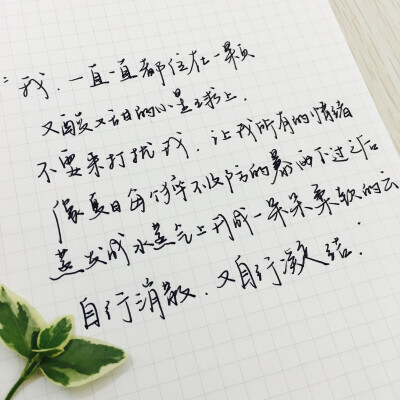 "我，一直一直都住在一颗
又酸又甜的小星球上，
不要来打扰我，让我所有的情绪
像夏日每个猝不及防的暴雨下过之后
蒸发成水蒸气上升成一朵朵柔软的云
自行消散，又自行凝结。